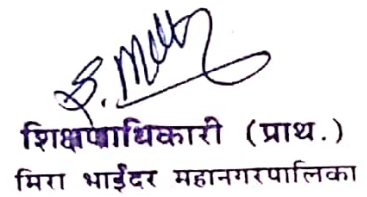 शिक्षणाधिकारी (प्राथ.)
मिरा भाईंदर महानगरपालिका